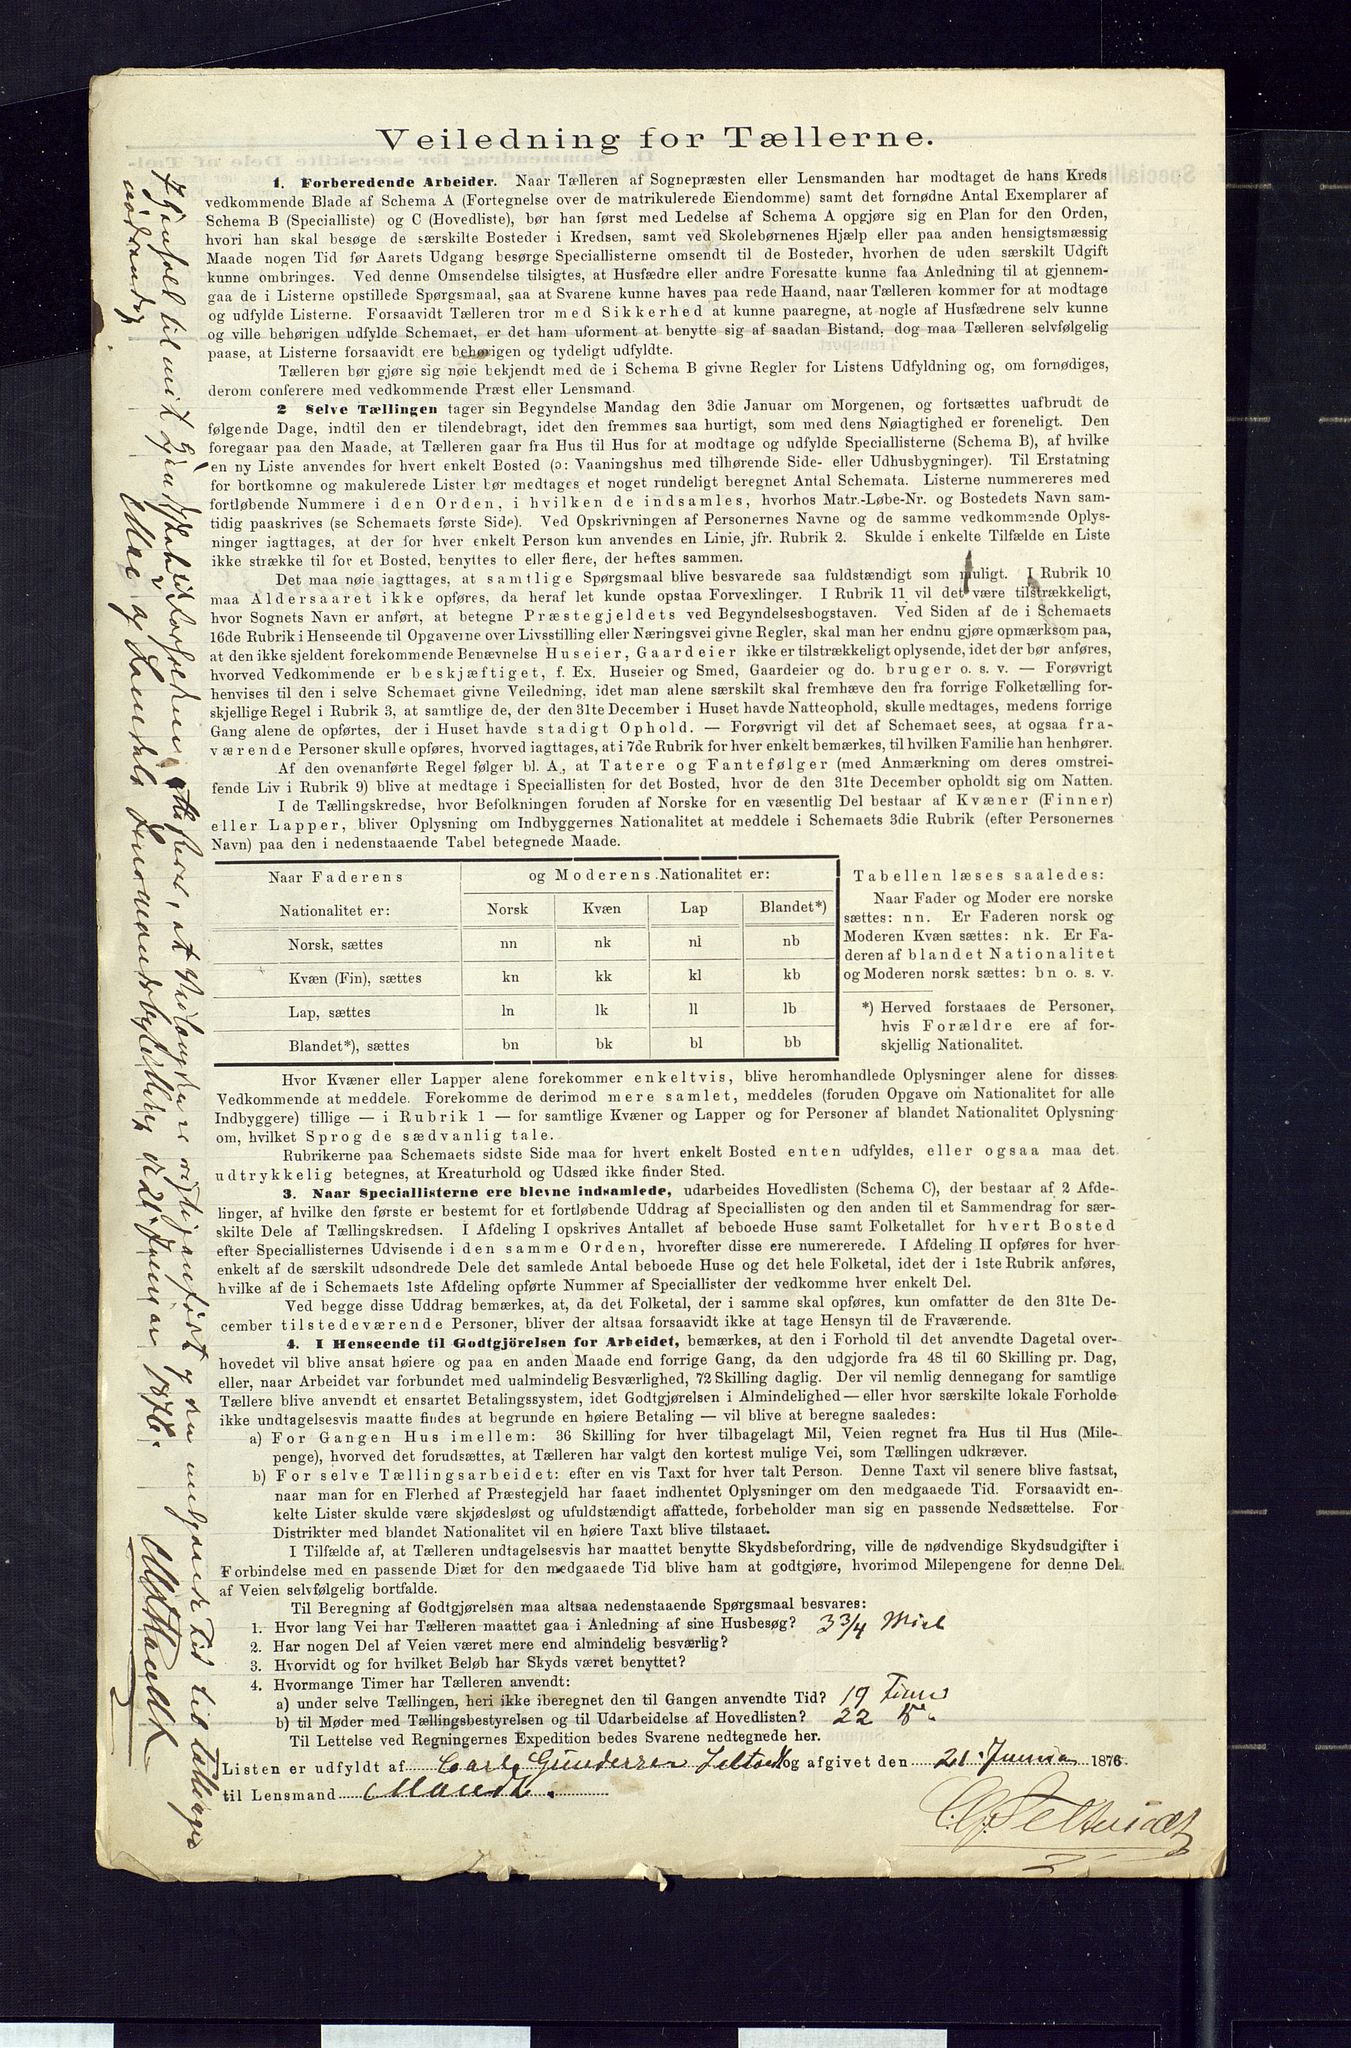 Veiledning for Tællerne.
1. Forberedende Arbeider. Naar Tælleren af Sognepræsten eller Lensmanden har modtaget de hans Kreds
vedkommende Blade af Schema A (Fortegnelse over de matrikulerede Eiendomme) samt det fornødne Antal Exemplarer af
Schema B (Specialliste) og C (Hovedliste), bør han først med Ledelse af Schema A opgjøre sig en Plan for den Orden,
hvori han skal besøge de særskilte Bosteder i Kredsen, samt ved Skolebørnenes Hjælp eller paa anden hensigtsmæssig
Maade nogen Tid før Aarets Udgang besørge Speciallisterne omsendt til de Bosteder, hvorhen de uden særskilt Udgift
kunne ombringes. Ved denne Omsendelse tilsigtes, at Husfædre eller andre Foresatte kunne faa Anledning til at gjennem-
gaa de i Listerne opstillede Spørgsmaal, saa at Svarene kunne haves paa rede Haand, naar Tælleren kommer for at modtage
og udfylde Listerne. Forsaavidt Tælleren tror med Sikkerhed at kunne paaregne, at nogle af Husfædrene selv kunne
og ville behørigen udfylde Schemaet, er det ham uforment at benytte sig af saadan Bistand, dog maa Tælleren selvfølgelig
paase, at Listerne forsaavidt ere behørigen og tydeligt udfyldte.
Tælleren bør gjøre sig nøie bekjendt med de i Schema B givne Regler for Listens Udfyldning og, om fornødiges,
derom conferere med vedkommende Præst eller Lensmand.
2 Selve Tællingen tager sin Begyndelse Mandag den 3die Januar om Morgenen, og fortsættes uafbrudt de
følgende Dage, indtil den er tilendebragt, idet den fremmes saa hurtigt, som med dens Nøiagtighed er foreneligt. Den
foregaar paa den Maade, at Tælleren gaar fra Hus til Hus for at modtage og udfylde Speciallisterne (Schema B), af hvilke
en ny Liste anvendes for hvert enkelt Bosted (ɔ: Vaaningshus med tilhørende Side- eller Udhusbygninger). Til Erstatning
for bortkomne og makulerede Lister bør medtages et noget rundeligt beregnet Antal Schemata. Listerne nummereres med
fortløbende Nummere i den Orden, i hvilken de indsamles, hvorhos Matr.-Løbe-Nr. og Bostedets Navn sam-
tidig paaskrives (se Schemaets første Side). Ved Opskrivningen af Personernes Navne og de samme vedkommende Oplys-
ninger iagttages, at der for hver enkelt Person kun anvendes en Linie, jfr. Rubrik 2. Skulde i enkelte Tilfælde en Liste
ikke strække til for et Bosted, benyttes to eller flere, der heftes sammen.
Det maa nøie iagttages, at samtlige Spørgsmaal blive besvarede saa fuldstændigt som muligt. I Rubrik 10
maa Aldersaaret ikke opføres, da heraf let kunde opstaa Forvexlinger. I Rubrik 11 vil det være tilstrækkeligt,
hvor Sognets Navn er anført, at betegne Præstegjeldets ved Begyndelsesbogstaven. Ved Siden af de i Schemaets
16de Rubrik i Henseende til Opgaverne over Livsstilling eller Næringsvei givne Regler, skal man her endnu gjøre opmærksom paa,
at den ikke sjeldent forekommende Benævnelse Huseier, Gaardeier ikke er tilstrækkeligt oplysende, idet der bør anføres,
hvorved Vedkommende er beskjæftiget, f. Ex. Huseier og Smed, Gaardeier og do. bruger o. s. v. — Forøvrigt
henvises til den i selve Schemaet givne Veiledning, idet man alene særskilt skal fremhæve den fra forrige Folketælling for-
skjellige Regel i Rubrik 3, at samtlige de, der den 31te December i Huset havde Natteophold, skulle medtages, medens forrige
Gang alene de opførtes, der i Huset havde stadigt Ophold. — Forøvrigt vil det af Schemaet sees, at ogsaa fra-
værende Personer skulle opføres, hvorved iagttages, at i 7de Rubrik for hver enkelt bemærkes, til hvilken Familie han henhører.
Af den ovenanførte Regel følger bl. A., at Tatere og Fantefølger (med Anmærkning om deres omstrei-
fende Liv i Rubrik 9) blive at medtage i Speciallisten for det Bosted, hvor de den 31te December opholdt sig om Natten.
I de Tællingskredse, hvor Befolkningen foruden af Norske for en væsentlig Del bestaar af Kvæner (Finner)
eller Lapper, bliver Oplysning om Indbyggernes Nationalitet at meddele i Schemaets 3die Rubrik (efter Personernes
Navn) paa den i nedenstaaende Tabel betegnede Maade.
Naar Faderens og Moderens Nationalitet er:
Nationalitet er: Norsk Kvæn Lap Blandet*)
Norsk, sættes nn nk nl nb
Kvæn (Fin), sættes kn kk kl kb
Lap, sættes ln lk ll lb
Blandet*), sættes bn bk bl bb
Tabellen læses saaledes:
Naar Fader og Moder ere norske
sættes: nn. Er Faderen norsk og
Moderen Kvæn sættes: nk. Er Fa-
deren af blandet Nationalitet
og Moderen norsk sættes: bn o. s. v.
*) Herved forstaaes de Personer,
hvis Forældre ere af for-
skjellig Nationalitet.
Hvor Kvæner eller Lapper alene forekommer enkeltvis, blive heromhandlede Oplysninger alene for disses
Vedkommende at meddele. Forekomme de derimod mere samlet, meddeles (foruden Opgave om Nationalitet for alle
Indbyggere) tillige — i Rubrik 1 — for samtlige Kvæner og Lapper og for Personer af blandet Nationalitet Oplysning
om, hvilket Sprog de sædvanlig tale.
Rubrikerne paa Schemaets sidste Side maa for hvert enkelt Bosted enten udfyldes, eller ogsaa maa det
udtrykkelig betegnes, at Kreaturhold og Udsæd ikke finder Sted.
3. Naar Speciallisterne ere blevne indsamlede, udarbeides Hovedlisten (Schema C), der bestaar af 2 Afde-
linger, af hvilke den første er bestemt for et fortløbende Uddrag af Speciallisten og den anden til et Sammendrag for sær-
skilte Dele af Tællingskredsen. I Afdeling I opskrives Antallet af beboede Huse samt Folketallet for hvert Bosted
efter Speciallisternes Udvisende i den samme Orden, hvorefter disse ere numererede. I Afdeling II opføres for hver
enkelt af de særskilt udsondrede Dele det samlede Antal beboede Huse og det hele Folketal, idet der i 1ste Rubrik anføres,
hvilke af de i Schemaets 1ste Afdeling opførte Nummer af Speciallister der vedkomme hver enkelt Del.
Ved begge disse Uddrag bemærkes, at, da det Folketal, der i samme skal opføres, kun omfatter de den 31te De-
cember tilstedeværende Personer, bliver der altsaa forsaavidt ikke at tage Hensyn til de Fraværende.
4. I Henseende til Godtgjörelsen for Arbeidet, bemærkes, at den i Forhold til det anvendte Dagetal over-
hovedet vil blive ansat høiere og paa en anden Maade end forrige Gang, da den udgjorde fra 48 til 60 Skilling pr. Dag,
eller, naar Arbeidet var forbundet med ualmindelig Besværlighed, 72 Skilling daglig. Der vil nemlig dennegang for samtlige
Tællere blive anvendt et ensartet Betalingssystem, idet Godtgjørelsen i Almindelighed — eller hvor særskilte lokale Forholde
ikke undtagelsesvis maatte findes at begrunde en høiere Betaling — vil blive at beregne saaledes:
a) For Gangen Hus imellem: 36 Skilling for hver tilbagelagt Mil, Veien regnet fra Hus til Hus (Mile-
penge), hvorved det forudsættes, at Tælleren har valgt den kortest mulige Vei, som Tællingen udkræver.
b) For selve Tællingsarbeidet: efter en vis Taxt for hver talt Person. Denne Taxt vil senere blive fastsat,
naar man for en Flerhed af Præstegjeld har faaet indhentet Oplysninger om den medgaaede Tid. Forsaavidt en-
kelte Lister skulde være skjødesløst og ufuldstændigt affattede, forbeholder man sig en passende Nedsættelse. For
Distrikter med blandet Nationalitet vil en høiere Taxt blive tilstaaet.
I Tilfælde af, at Tælleren undtagelsesvis har maattet benytte Skydsbefordring, ville de nødvendige Skydsudgifter i
Forbindelse med en passende Diæt for den medgaaede Tid blive ham at godtgjøre, hvorimod Milepengene for denne Del
af Veien selvfølgelig bortfalde.
Til Beregning af Godtgjørelsen maa altsaa nedenstaaende Spørgsmaal besvares:
1. Hvor lang Vei har Tælleren maattet gaa i Anledning af sine Husbesøg? 3 3/4 Miil
2. Har nogen Del af Veien været mere end almindelig besværlig?
3. Hvorvidt og for hvilket Beløb har Skyds været benyttet?
4. Hvormange Timer har Tælleren anvendt:
a) under selve Tællingen, heri ikke iberegnet den til Gangen anvendte Tid? 19 Timer
b) til Møder med Tællingsbestyrelsen og til Udarbeidelse af Hovedlisten? 22
Til Lettelse ved Regningernes Expedition bedes Svarene nedtegnede her.
Listen er udfyldt af Carl Gundersen og afgivet den 21 Januar 1876
til Lensmand Mandt.